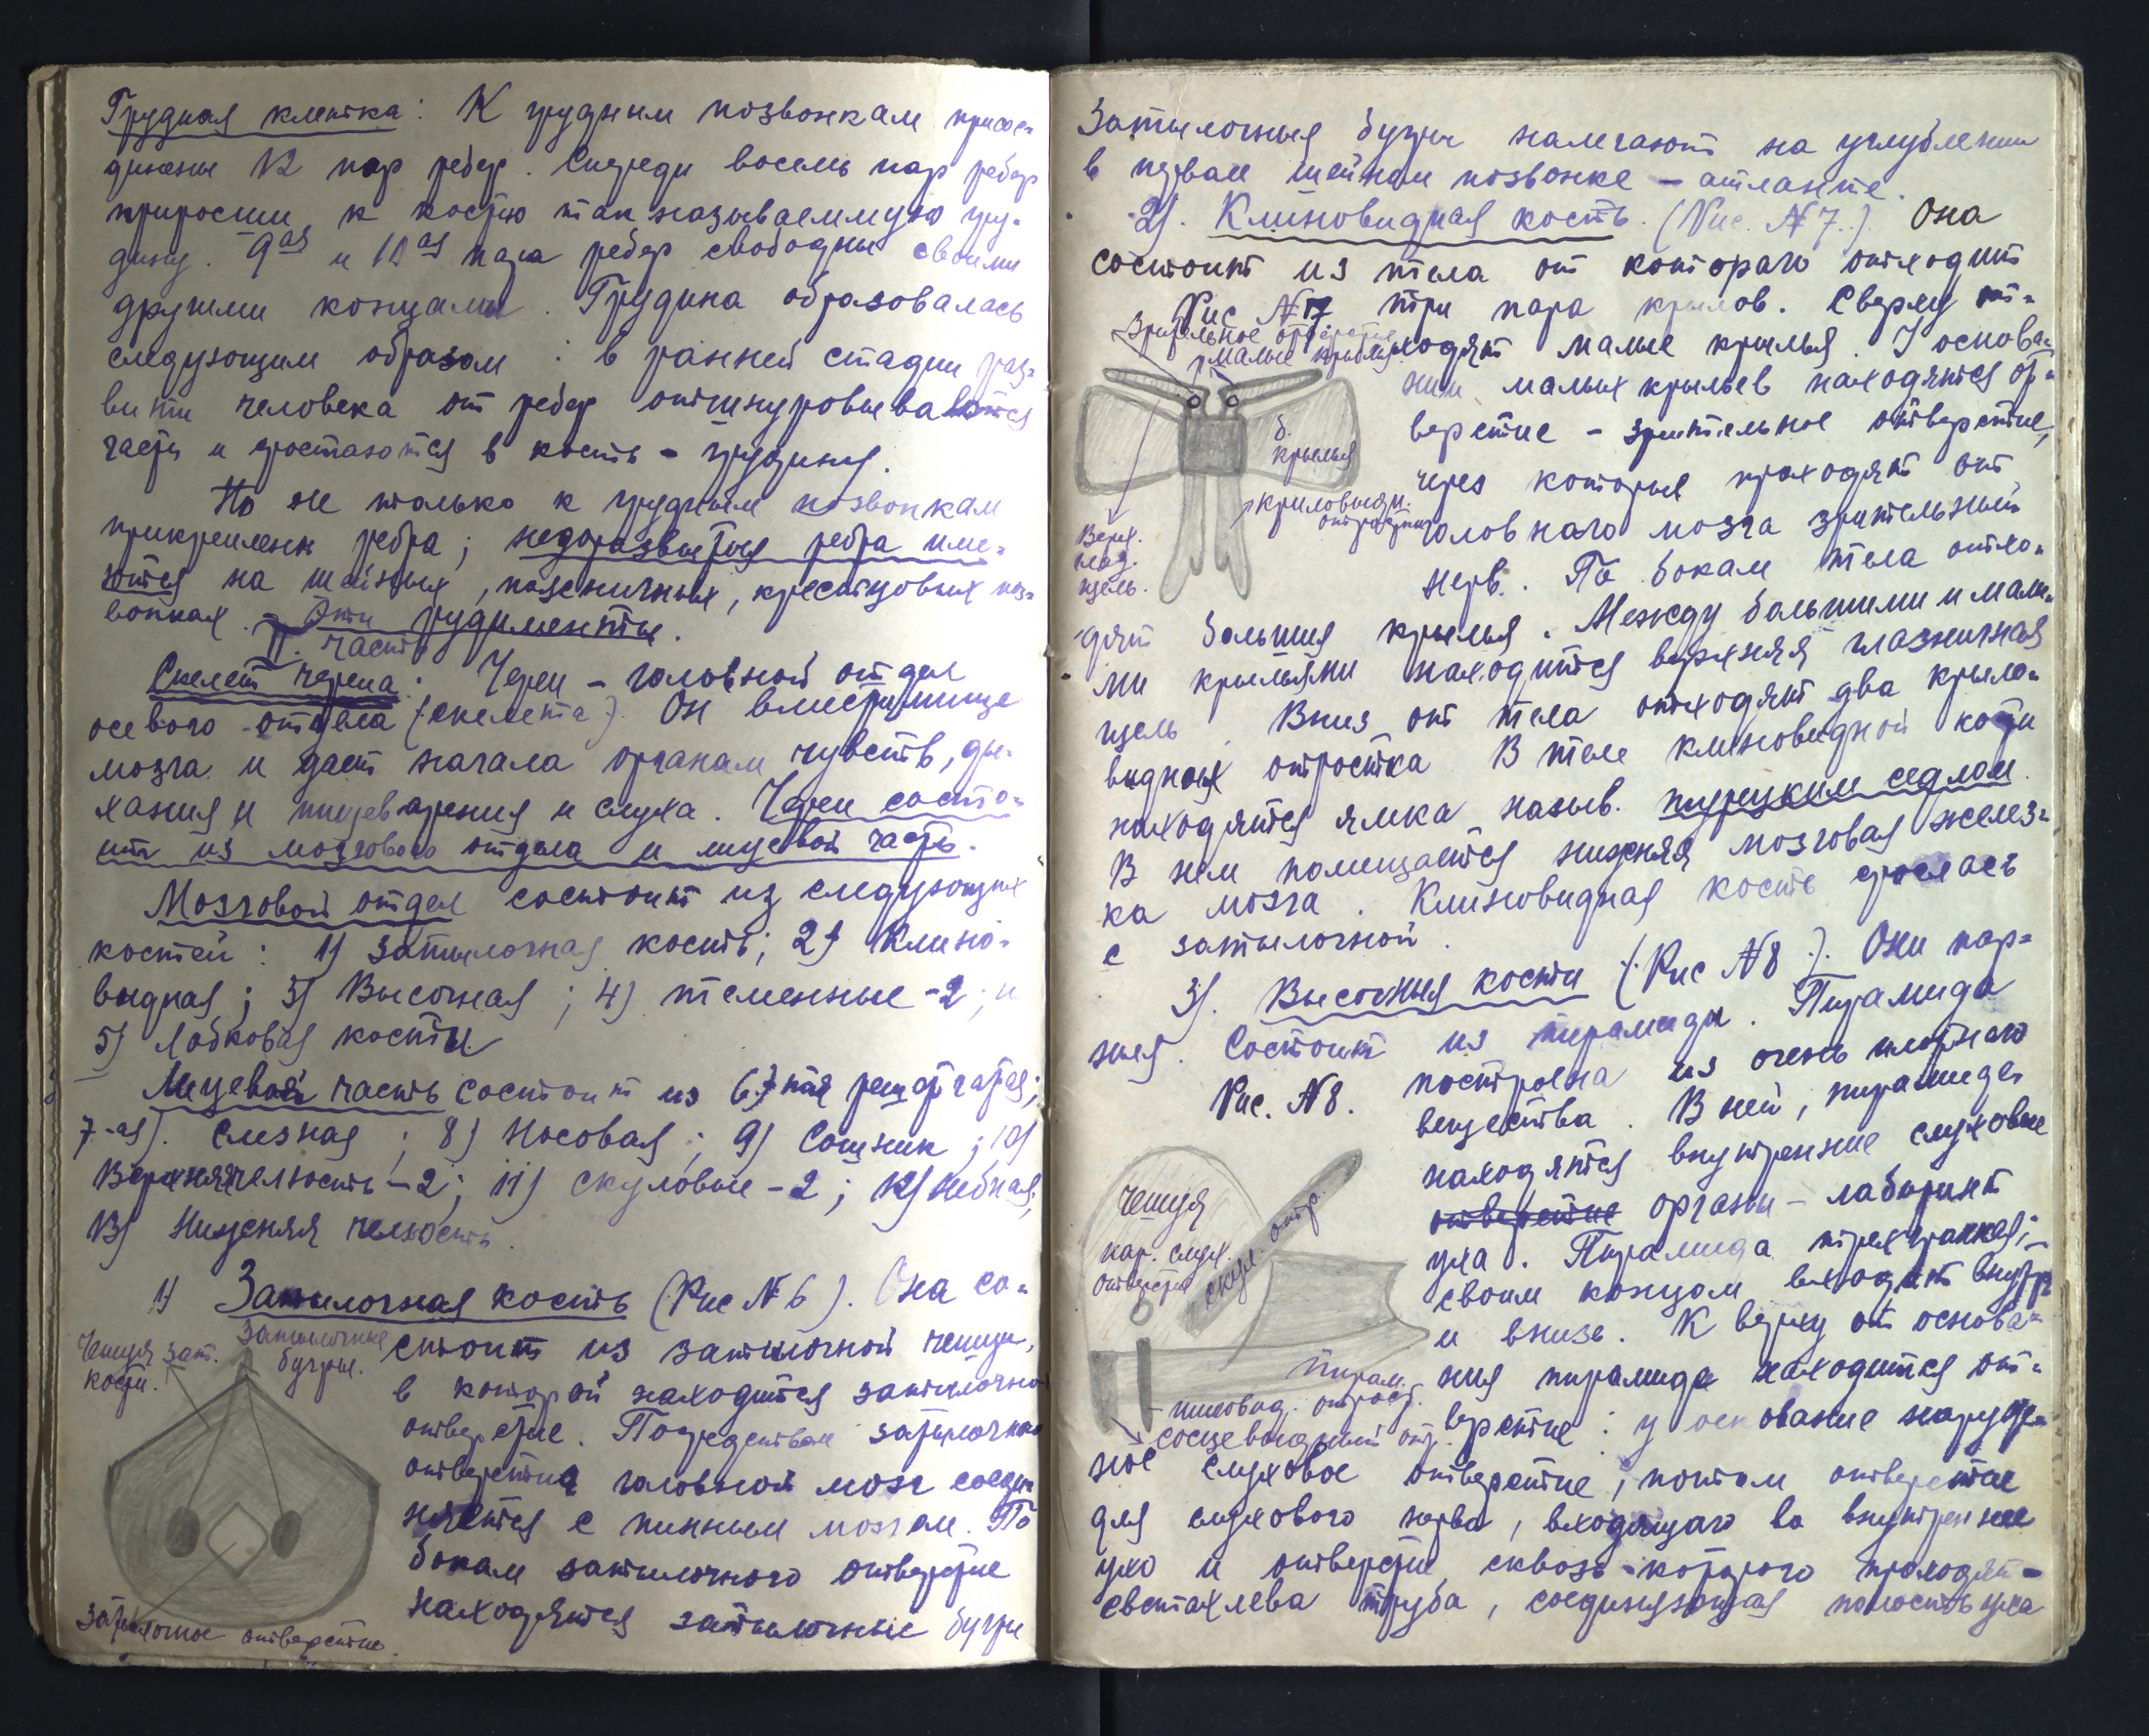 Грудная клетка: К грудным позвонкам присое-
динены 12 пар ребер. Спереди восемь пар ребер
приросли к костью так называеммую гру-
дину. 9ая и 10ая пара ребер свободны своими
другими концами. Грудина образовалась
следующим образом: в ранней стадии раз-
вити человека от ребер отшнуровываются
части и сростаются в кость - грудина.
Но не только к грудным позвонкам
прикреплены ребра; недоразвитыя ребра име-
ются на шейных, поясничных, крестцовых поз-
вонках. - Эти рудименты.
II. часть
Скелет черепа: Череп - головной отдел
осевого отдела (скелета). Он вместилище
мозга и дает начала органам чувств, ды-
хания и пищеварения и слуха. Череп состо-
ит из мозгового отдела и лицевой части.
Мозговой отдел состоит из следующих
костей: 1) затылочная кость; 2) Клино-
видная; 3) Височная; 4) теменные -2; и
5) Лобковая кости
Лицевой часть состоит из 6) тая решотчатая;
7-ая). Слезная; 8) Носовая; 9) Сошник; 10)
Верхняя челюсть -2; 11) скуловые -2; 12) небная;
13) Нижняя челюсть.
1) Затылочная кость (Рис № 6). Она со-
стоит из затылочной чешуи,
в которой находится затылочно
отверстие. Посредством затылочного
отверстия головной мозг соеди-
няется с пинным мозгом. По
бокам затылочного отверстие
находятся затылочные бугры
Чешуя зат.
кости.
Затылочные
бугры.
Затылочное отверстие.
Затылочныя бугры налегают на углублении
в первом шейном позвонке - атланте.
2). Клиновидная кость. (Рис. № 7.). Она
состоит из тела от котораго отходит
три пара крылов. Сверху от-
ходят малые крылья. У основа-
нии малых крыльев находятся от-
верстие - зрительное отверстие,
через которые проходят от
головного мозга зрительный
нерв. По бокам тела отхо-
дят большия крылья. Между большими и малы-
ми крыльями находится верхняя глазничная
щель. Вниз от тела отходят два крыло-
видных отростка В теле клиновидной кости
находятся ямка назыв. турецким седлом.
В нем помещается нижняя мозговая желез-
ка мозга. Клиновидная кость срослась
с затылочной.
Рис № 7
Зрительное отверстие
малые крылья
б.
крылья
криловидн.
отростки
Верх.
глаз.
щель.
3). Височныя кости (Рис № 8). Они пар-
ныя. Состоит из пирамиды. Пирамида
построена из очень плотного
вещества. В ней, пирамиде,
находятся внутренние слуховые
отверстие органы - лабиринт
уха. Пирамида трехгранная;
своим концом входит внутрь
и вниз. К верху от основа-
ния пирамиде находится от-
верстие: у основание наруж-
ное слуховое отверстие; потом отверстие
для слухового нерва, входящаго во внутреннее
ухо и отверстие сквозь котораго проходят -
евстахлева труба, соединяющая полость уха
Рис. № 8.
Чешуя
нар. слух.
отверстие
скул. отр.
Пирам.
- шиловид. отрост.
сосцевидный отр.